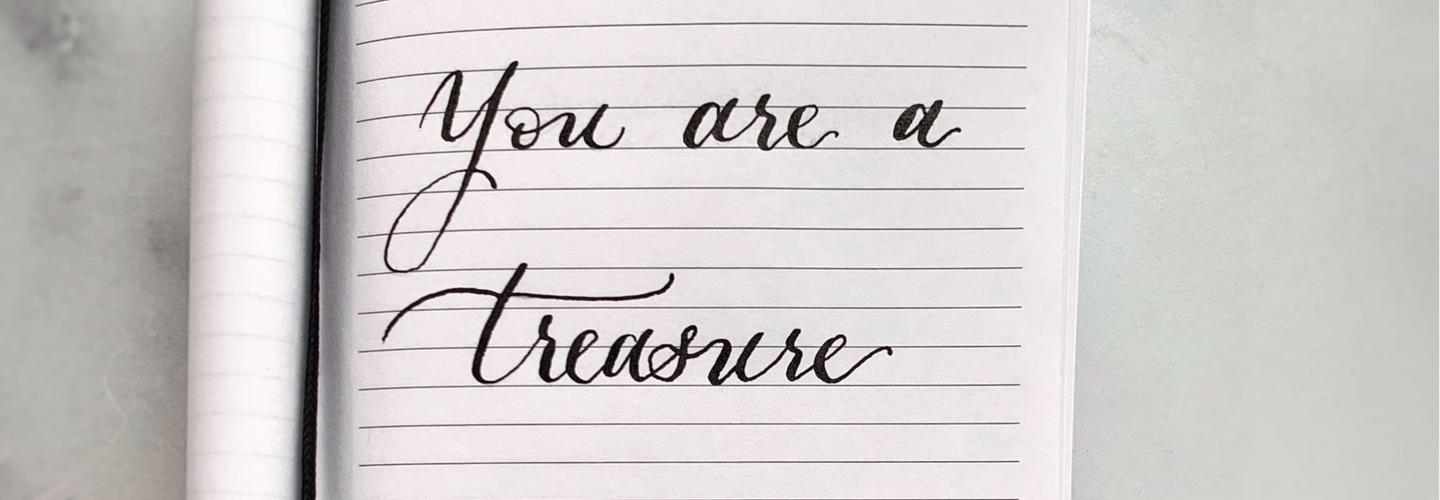 You are a
treasure